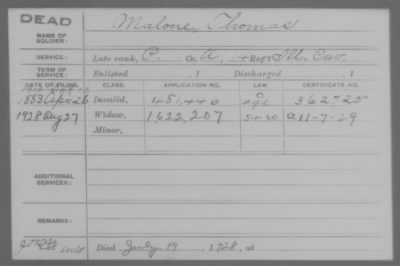 DEAD
NAME OF SOLDIER: Malone, Thomas
SERVICE: Late rank, P. Co. A, 14 Reg't Ill. Cav.
TERM OF SERVICE: Enlisted , 1 Discharged , 1
DATE OF FILING. CLASS. APPLICATION NO. LAW. CERTIFICATE NO.
1883 Apr 26 Invalid, 481,446 age 362725
1928 Aug 27 Widow, 1622,207 5-1-20 A 11-7-29
Minor,
ADDITIONAL SERVICES:
REMARKS:
Died July 19, 1928, at